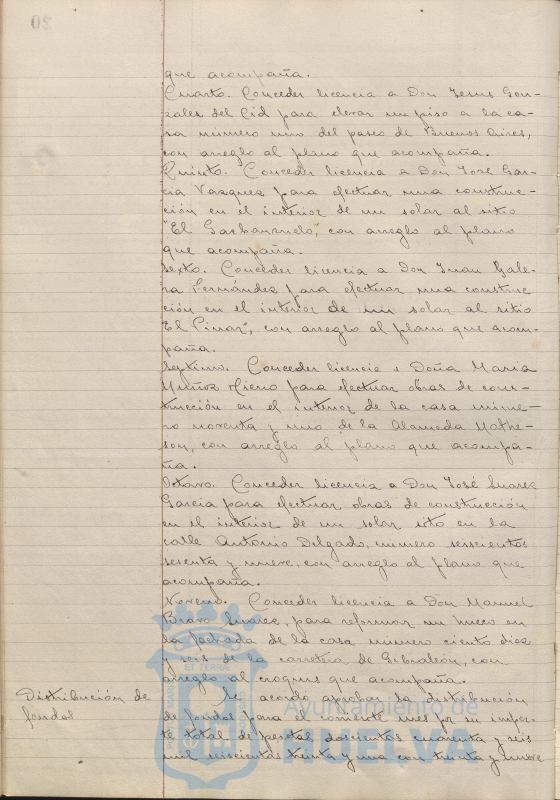 que acompaña.
Cuarto. Conceder licencia a Don Jesus Gon-
zales del Cid para elevar un piso a la ca-
sa número uno del paseo de Buenos Aires,
con arreglo al plano que acompaña.
Quinto. Conceder licencia a Don José Gar-
cia Vazquez para efectuar una construc-
ción en el interior de un solar al sitio
"El Garbanzuelo", con arreglo al plano
que acompaña.
Sexto. Conceder licencia a Don Juan Bale-
ra Fernández para efectuar una construc-
ción en el interior de un solar al sitio
"El Pinar", con arreglo al plano que acom-
paña.
Septimo. Conceder licencia a Doña Maria
Muñoz para efectuar obras de cons-
trucción en el interior de la casa núme-
ro noventa y uno de la Alameda Mathe-
son, con arreglo al plano que acompa-
ña.
Octavo. Conceder licencia a Don José Suarez
Garcia para efectuar obras de construcción
en el interior de un solar sito en la
calle Antonio Delgado, numero seiscientos
sesenta y nueve, con arreglo al plano que
acompaña.
Noveno. Conceder licencia a Don Manuel
Bravo Suarez, para reformar un hueco en
la fachada de la casa numero ciento diez
y seis de la carretera de Gibraleón, con
arreglo al croquis que acompaña.
Distribución de fondos
Se acordó aprobar la distribución
de fondos para el corriente mes por su impor-
te total de pesetas doscientos cuarenta y seis
mil seiscientas treinta y una con treinta y nueve
Ayuntamiento de
HUELVA